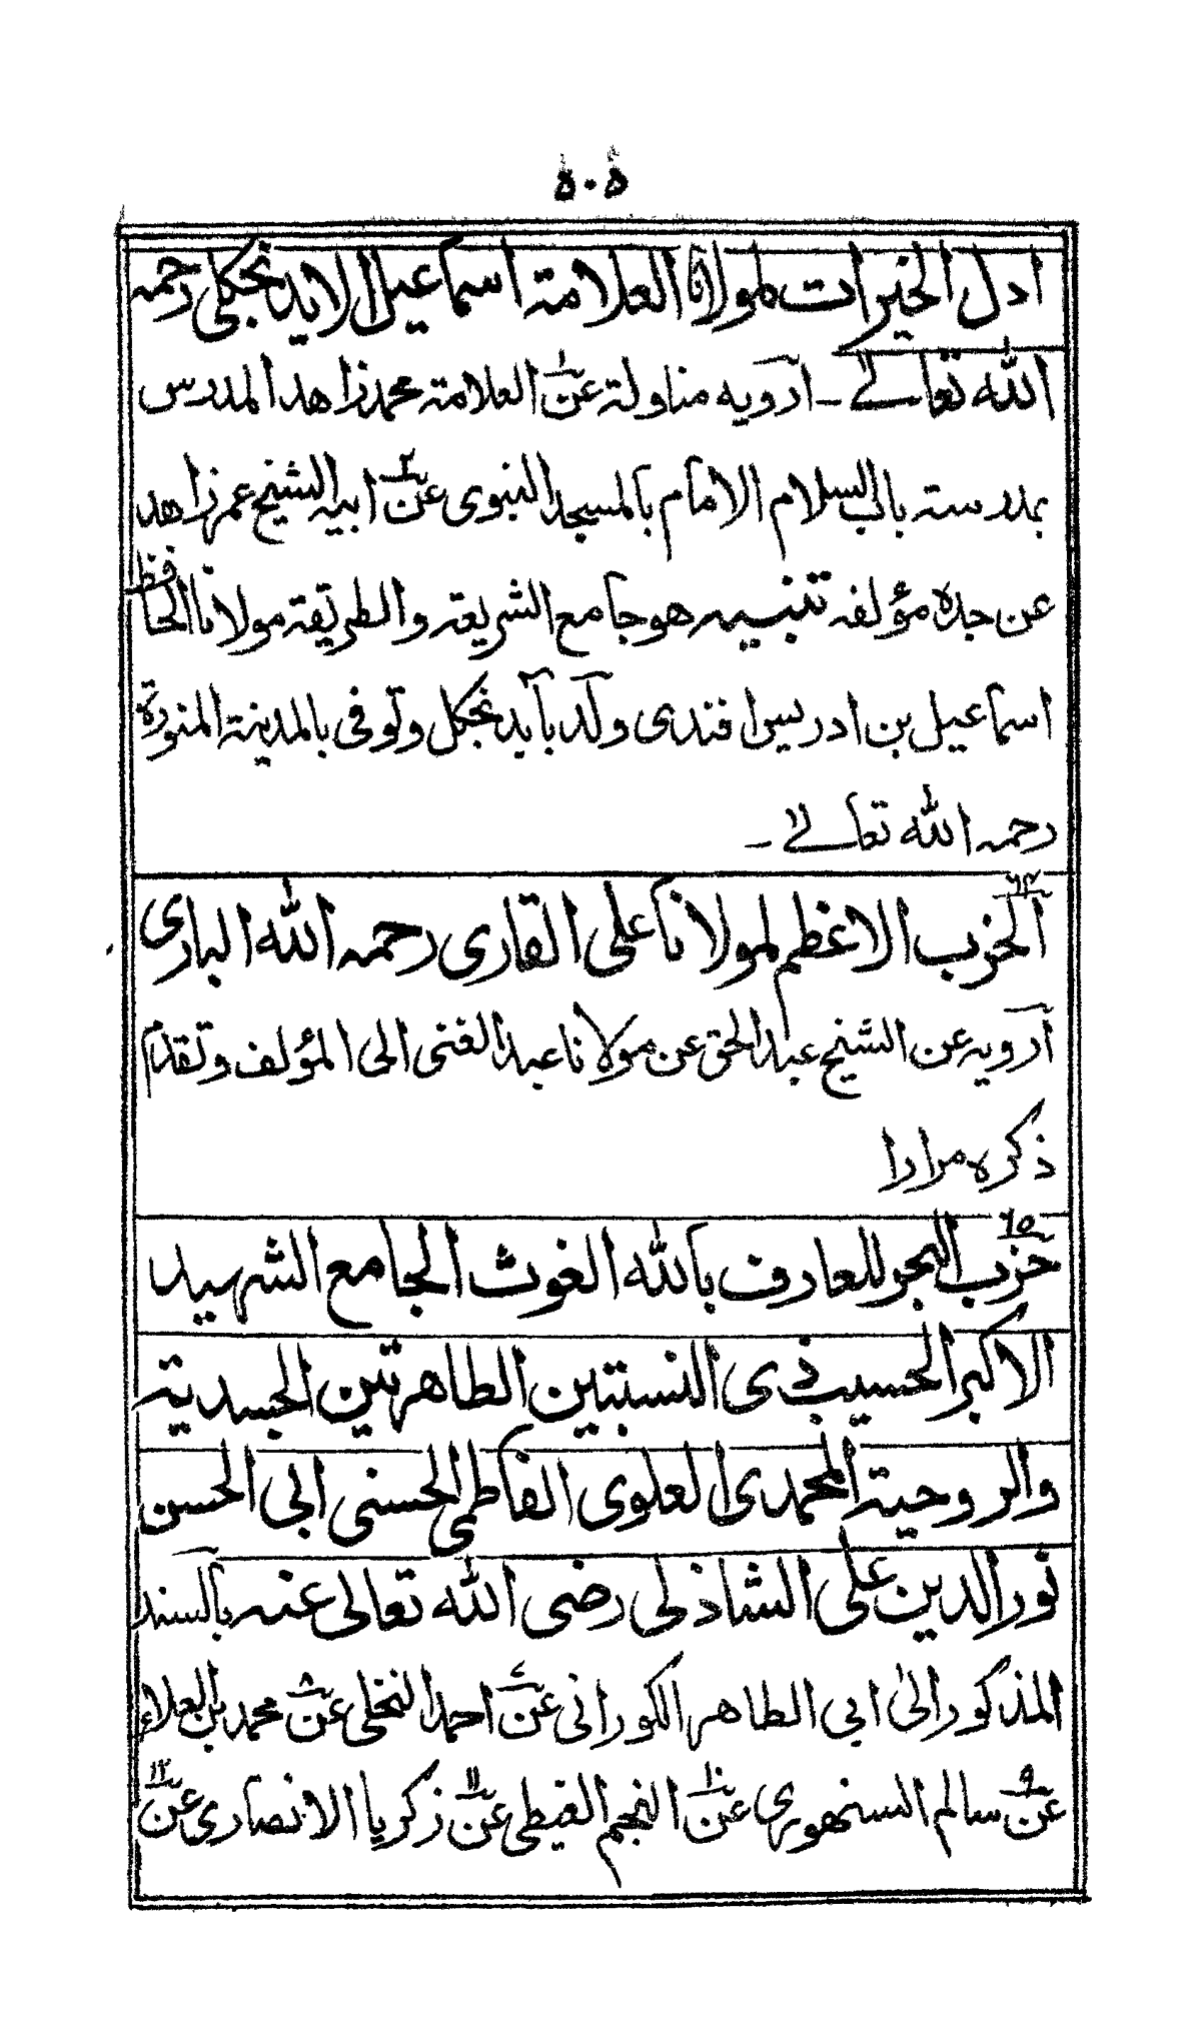 ٥٠٥
ادل الخيرات لمولانا العلامة اسماعيل الايدنجكلى رحمه
الله تعالے ـ آرويه مناولة عن١ العلامة محمد زاهد المدرس
بمدرسة باب السلام الامام بالمسجد النبوى عن٢ ابيه الشيخ عمر زاهد
عن جده مؤلفه تنبيه هو جامع الشريعة والطريقة مولانا الحافظ
اسماعيل بن ادريس افندى ولد بآيدنجكل وتوفى بالمدينة المنورة
رحمه الله تعالے ـ
٦٤ الحزب الاعظم لمولانا على القارى رحمه الله البارى
آرويه عن الشيخ عبد الحق عن مولانا عبد الغنى الى المؤلف وتقدم
ذكره مرارا
٦٥ حزب البحر للعارف بالله الغوث الجامع الشهيد
الاكبر الحسيب ذى النسبتين الطاهرتين الجسدية
والروحية المحمدى العلوى الفاطمى الحسنى ابى الحسن
نور الدين على الشاذلى رضى الله تعالى عنه بالسند
المذكور الى ابى الطاهر الكورانى عن٧ احمد النخلى عن٨ محمد بن العلاء
عن٩ سالم السنهورى عن١٠ النجم الغيطى عن١١ زكريا الانصارى عن١٢